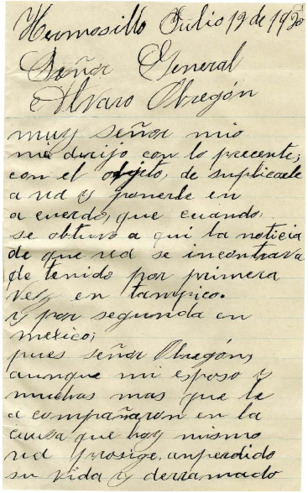 Hermosillo Julio 12 de 1920
Señor General
Alvaro Obregón
muy señor mio
me dirijo con lo precente;
con el objeto, de suplicarle
a vd y ponerle en
acuerdo, que cuando,
se obtuvo a qui la noticia
de que vd se incontrava
de tenido por primera
vez en tampico.
y por segunda en
mexico;
pues señor Obregón,
aunque mi esposo y
muchas mas que le
a compañaron en la
causa que hoy mismo
vd prosige. anperdido
su vida y derramado